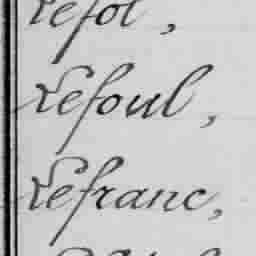 Lefol,
Lefoul,
Lefranc,